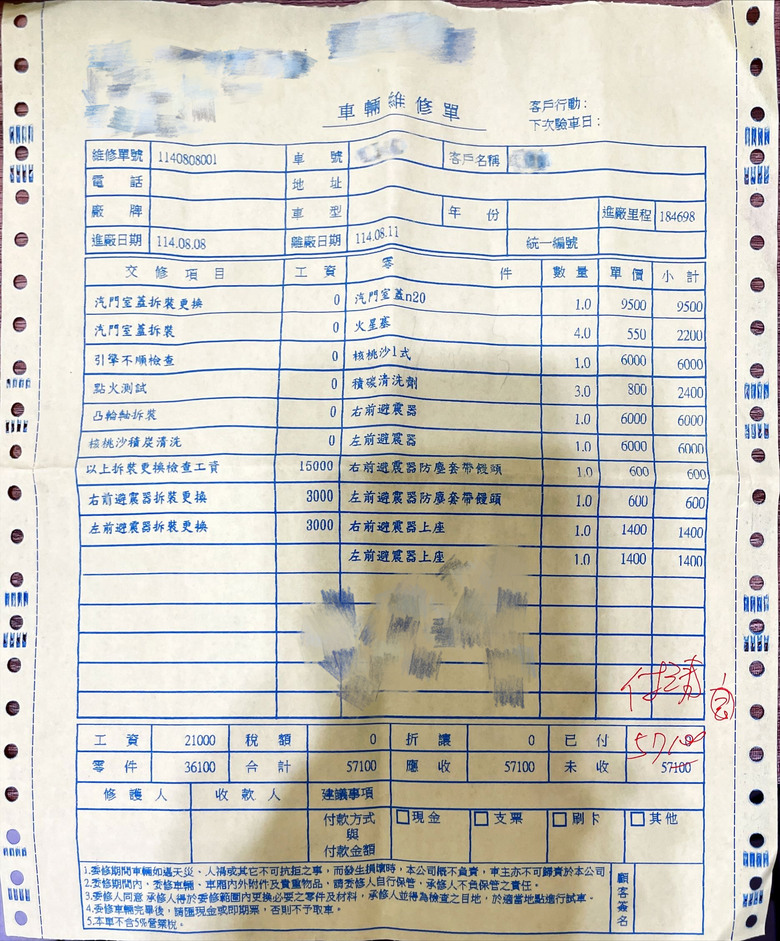 車輛維修單
客戶行動：
下次驗車日：
維修單號 1140808001 車號 客戶名稱
電話 地址
廠牌 車型 年份 進廠里程 184698
進廠日期 114.08.08 離廠日期 114.08.11 統一編號
交修項目 工資 零件 數量 單價 小計
汽門室蓋拆裝更換 0 汽門室蓋n20 1.0 9500 9500
汽門室蓋拆裝 0 火星塞 4.0 550 2200
引擎不順檢查 0 核桃沙1式 1.0 6000 6000
點火測試 0 積碳清洗劑 3.0 800 2400
凸輪軸拆裝 0 右前避震器 1.0 6000 6000
核桃沙積炭清洗 0 左前避震器 1.0 6000 6000
以上拆裝更換檢查工資 15000 右前避震器防塵套帶饅頭 1.0 600 600
右前避震器拆裝更換 3000 左前避震器防塵套帶饅頭 1.0 600 600
左前避震器拆裝更換 3000 右前避震器上座 1.0 1400 1400
左前避震器上座 1.0 1400 1400
付清
工資 21000 稅額 0 折讓 0 已付 0 57100
零件 36100 合計 57100 應收 57100 未收 57100
修護人 收款人 建議事項
付款方式與付款金額 現金 支票 刷卡 其他
1.委修期間車輛如遇天災、人禍或其它不可抗拒之事，而發生損壞時，本公司概不負責，車主亦不可歸責於本公司
2.委修期間內，委修車輛、車廂內外附件及貴重物品，請委修人自行保管，承修人不負保管之責任。
3.委修人同意 承修人得於委修範圍內更換必要之零件及材料，承修人並得為檢查之目地，於適當地點進行試車。
4.委修車輛完畢後，請匯現金或即期票，否則不予取車。
5.本單不含5%營業稅。
顧客簽名